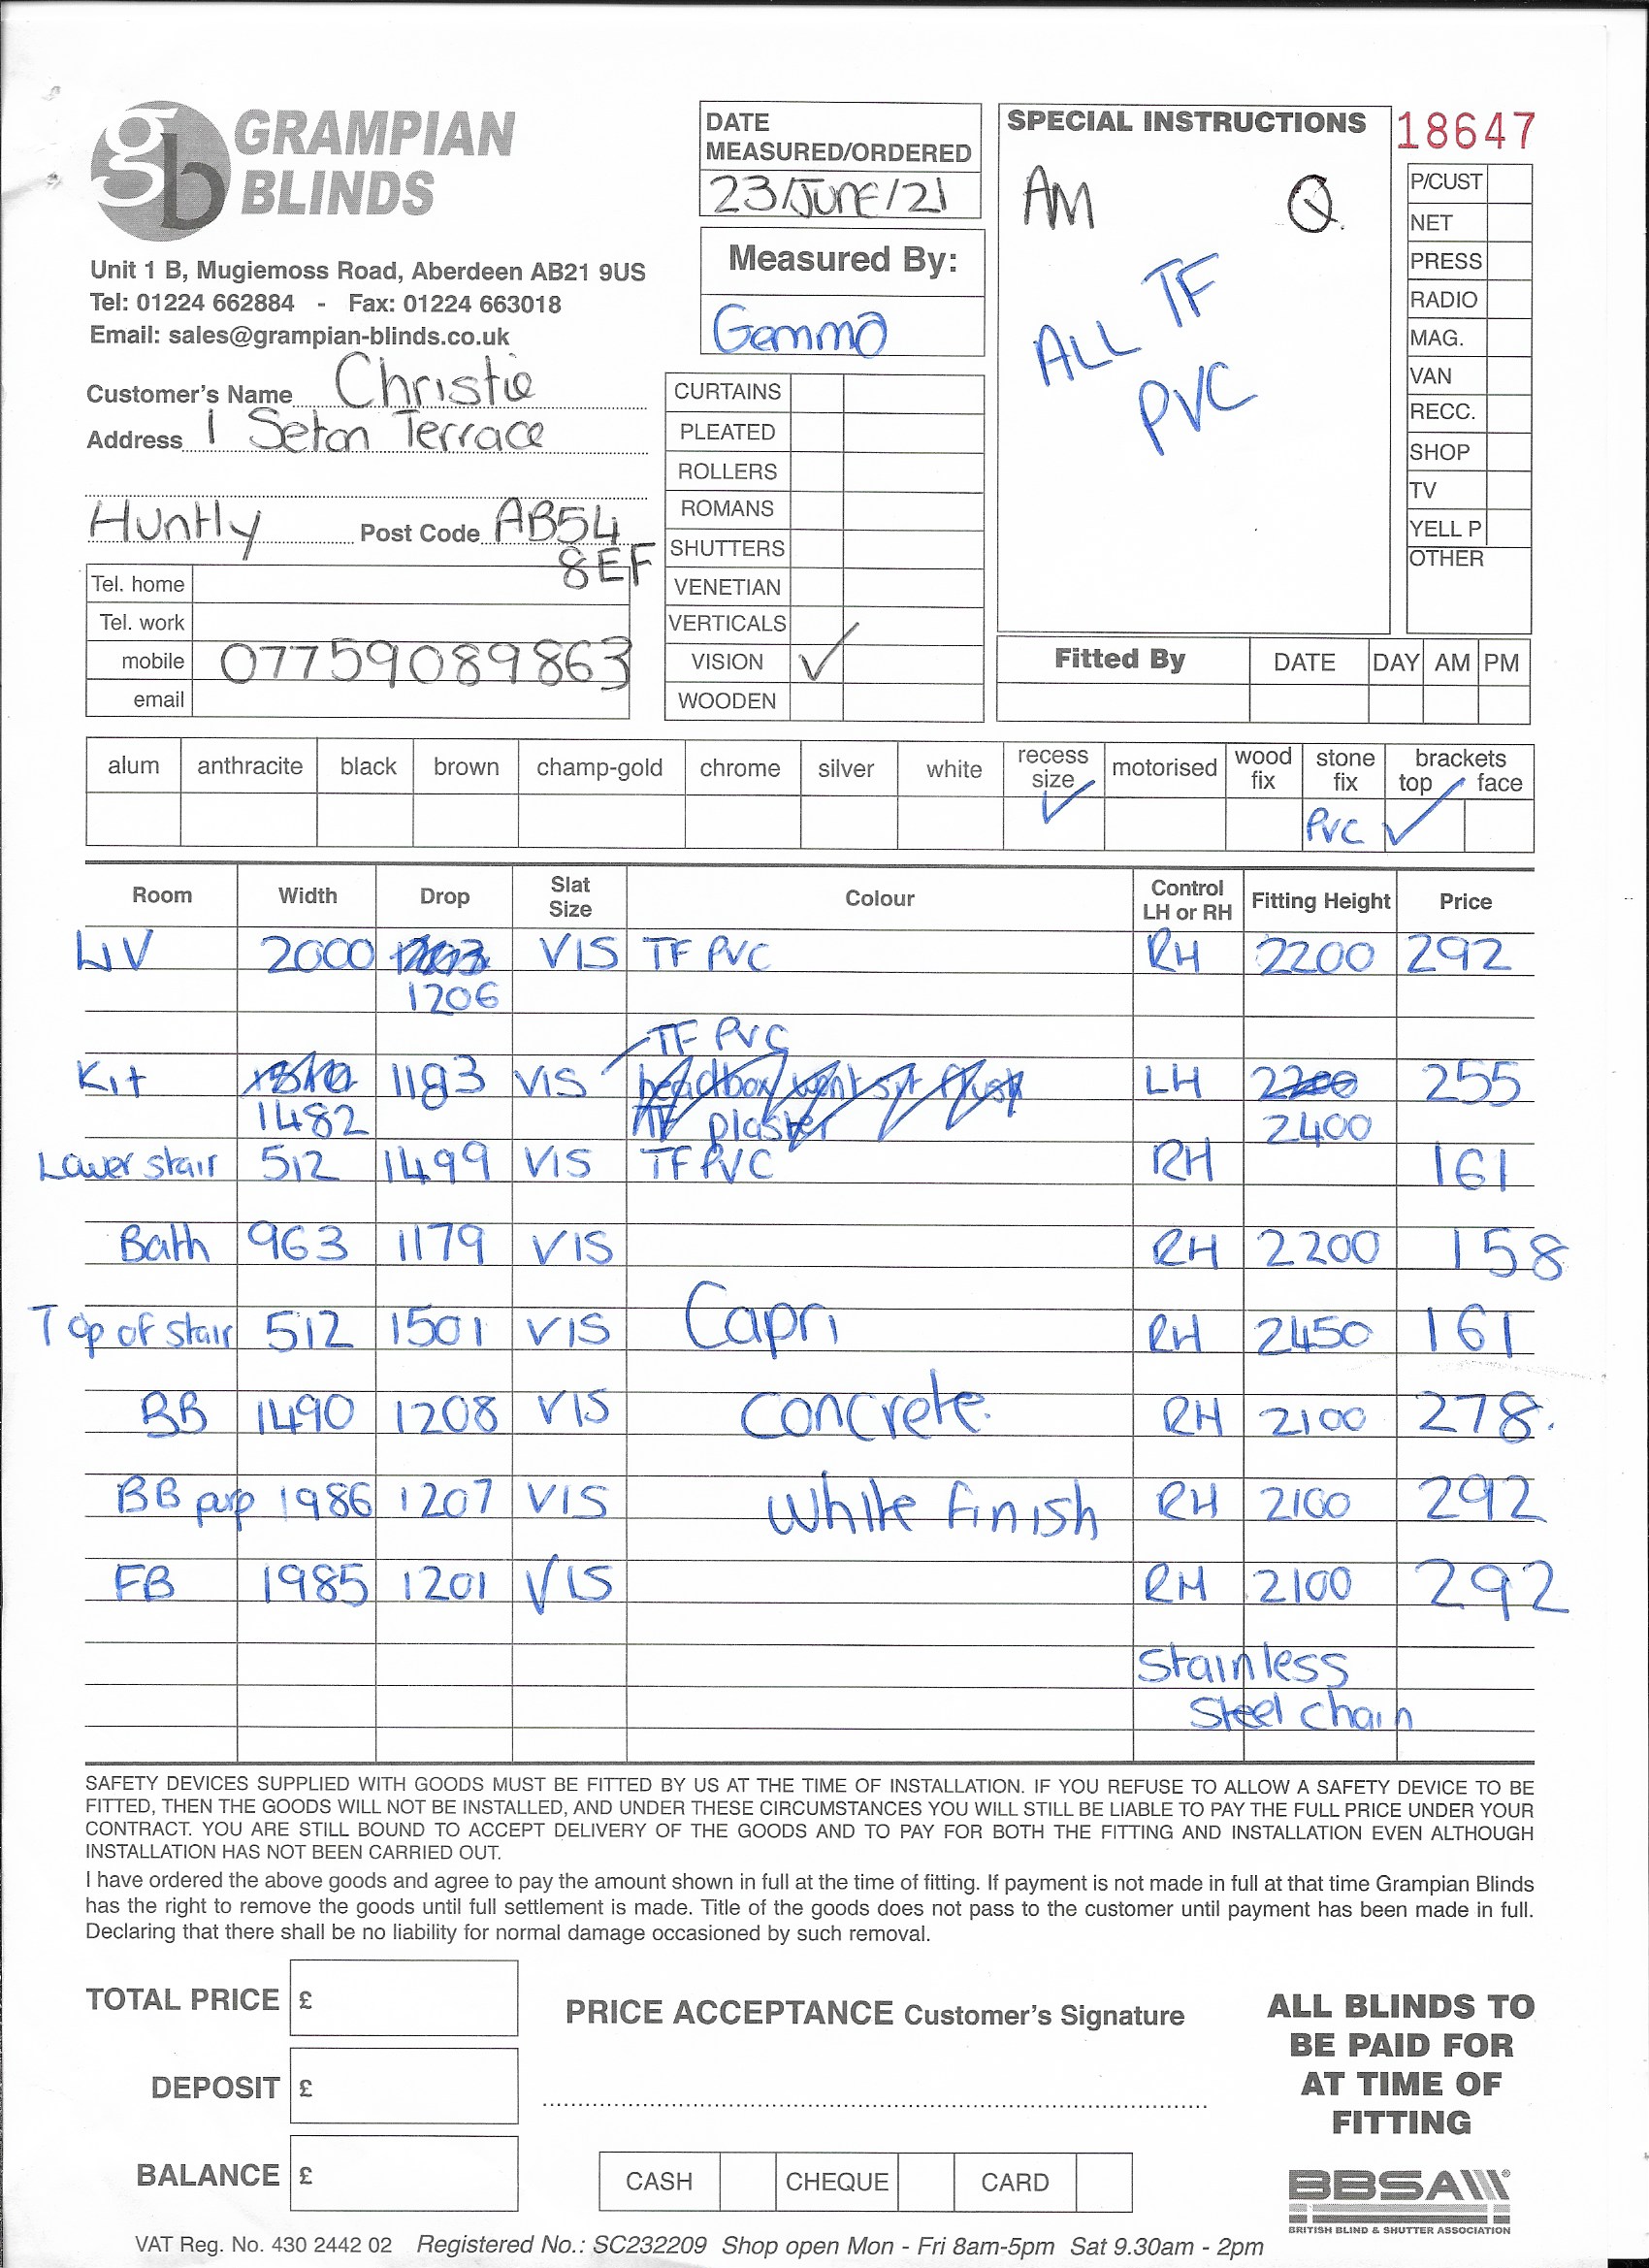 gb GRAMPIAN
BLINDS
Unit 1 B, Mugiemoss Road, Aberdeen AB21 9US
Tel: 01224 662884 - Fax: 01224 663018
Email: sales@grampian-blinds.co.uk
Customer's Name Christie
Address 1 Seton Terrace
Huntly Post Code AB54
8EF
Tel. home
Tel. work
mobile 07759089863
email
DATE
MEASURED/ORDERED
23/JUNE/21
Measured By:
Gemma
CURTAINS
PLEATED
ROLLERS
ROMANS
SHUTTERS
VENETIAN
VERTICALS
VISION ✓
WOODEN
SPECIAL INSTRUCTIONS
AM Q
ALL TF
PVC
18647
P/CUST
NET
PRESS
RADIO
MAG.
VAN
RECC.
SHOP
TV
YELL P
OTHER
Fitted By DATE DAY AM PM
alum anthracite black brown champ-gold chrome silver white recess size motorised wood fix stone fix brackets top face
✓ PVC ✓
Room Width Drop Slat Size Colour Control LH or RH Fitting Height Price
LIV 2000 VIS TF PVC RH 2200 292
1206
TF PVC
Kit 1183 VIS LH 255
1482 TF plaster 2400
Lower stair 512 1499 VIS TF PVC RH 161
Bath 963 1179 VIS RH 2200 158
Top of stair 512 1501 VIS Capri RH 2450 161
BB 1490 1208 VIS Concrete. RH 2100 278.
BB purp 1986 1207 VIS White finish RH 2100 292
FB 1985 1201 VIS RH 2100 292
Stainless
Steel chain
SAFETY DEVICES SUPPLIED WITH GOODS MUST BE FITTED BY US AT THE TIME OF INSTALLATION. IF YOU REFUSE TO ALLOW A SAFETY DEVICE TO BE
FITTED, THEN THE GOODS WILL NOT BE INSTALLED, AND UNDER THESE CIRCUMSTANCES YOU WILL STILL BE LIABLE TO PAY THE FULL PRICE UNDER YOUR
CONTRACT. YOU ARE STILL BOUND TO ACCEPT DELIVERY OF THE GOODS AND TO PAY FOR BOTH THE FITTING AND INSTALLATION EVEN ALTHOUGH
INSTALLATION HAS NOT BEEN CARRIED OUT.
I have ordered the above goods and agree to pay the amount shown in full at the time of fitting. If payment is not made in full at that time Grampian Blinds
has the right to remove the goods until full settlement is made. Title of the goods does not pass to the customer until payment has been made in full.
Declaring that there shall be no liability for normal damage occasioned by such removal.
TOTAL PRICE £
DEPOSIT £
BALANCE £
PRICE ACCEPTANCE Customer's Signature
CASH CHEQUE CARD
ALL BLINDS TO
BE PAID FOR
AT TIME OF
FITTING
BBSA
BRITISH BLIND & SHUTTER ASSOCIATION
VAT Reg. No. 430 2442 02 Registered No.: SC232209 Shop open Mon - Fri 8am-5pm Sat 9.30am - 2pm